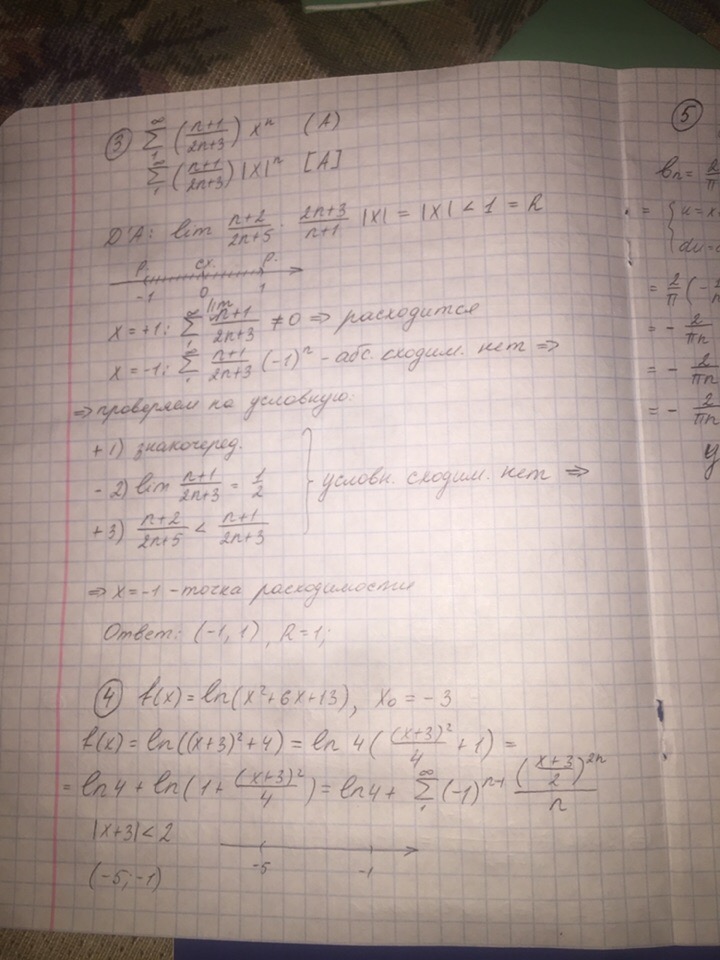 ③ ∑₁^∞ ((n+1)/(2n+3)) xⁿ (A)
∑₁^∞ ((n+1)/(2n+3)) |x|ⁿ [A]
D'A: lim (n+2)/(2n+5) · (2n+3)/(n+1) |x| = |x| < 1 = R
р. сх. р.
-1 0 1
x = +1: ∑₁^∞ lim (n+1)/(2n+3) ≠ 0 ⇒ расходится
x = -1: ∑₁^∞ (n+1)/(2n+3) (-1)ⁿ - абс. сходим. нет ⇒
⇒ проверяем на условную:
+ 1) знакочеред.
- 2) lim (n+1)/(2n+3) = 1/2
+ 3) (n+2)/(2n+5) < (n+1)/(2n+3)
} условн. сходим. нет ⇒
⇒ x = -1 - точка расходимости
Ответ: (-1, 1), R = 1;
④ f(x) = ln(x²+6x+13), x₀ = -3
f(x) = ln((x+3)²+4) = ln 4((x+3)²/4 + 1) =
= ln4 + ln(1 + (x+3)²/4) = ln4 + ∑₁^∞ (-1)ⁿ⁺¹ ((x+3)/2)²ⁿ / n
|x+3| < 2
-5 -1
(-5; -1)
⑤
bn = 2/π
= { u = x
du =
= 2/π (-
= - 2/πn
= - 2/πn
= - 2/πn